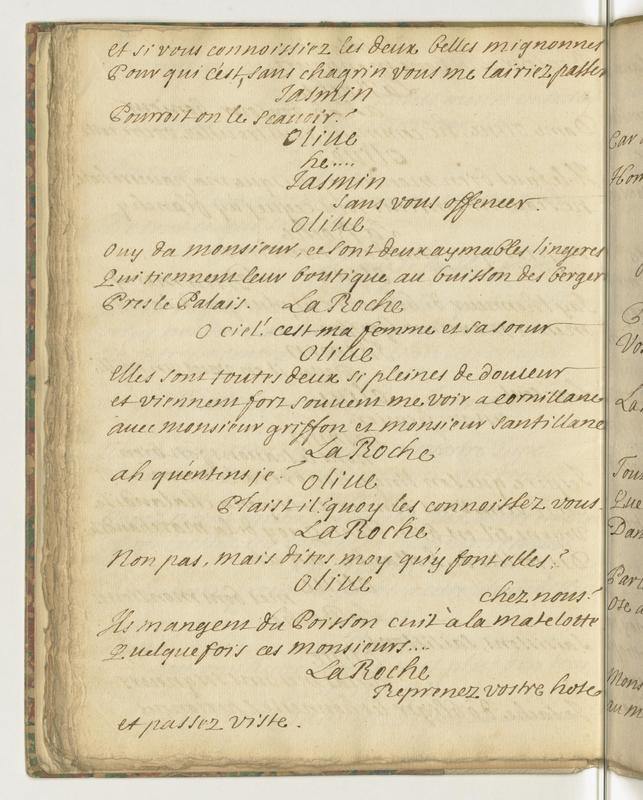 et si vous connoissiez les deux belles mignonnes
Pour qui c'est, sans chagrin vous me lairiez passer
Jasmin
Pourroit on le scauoir?
Oliue
he....
Jasmin
sans vous offencer.
Oliue
Ouy da monsieur, ce sont deux aymables lingeres
Qui tiennent leur boutique au buisson des berger
Pres le Palais. La Roche
O ciel! cest ma femme et sa soeur
Oliue
elles sont toutes deux si pleines de douceur
et viennent fort souuent me voir a cornillane
auec monsieur griffon et monsieur santillane
La Roche
ah qu'entens je? Oliue
Plaist il? quoy les connoissez vous.
La Roche
Non pas, mais dites moy qu'y font elles?
Oliue
chez nous?
Ils mangent du Poisson cuit à la matelotte
Quelque fois ces monsieurs....
La Roche
Reprenez vostre hote
et passez viste.